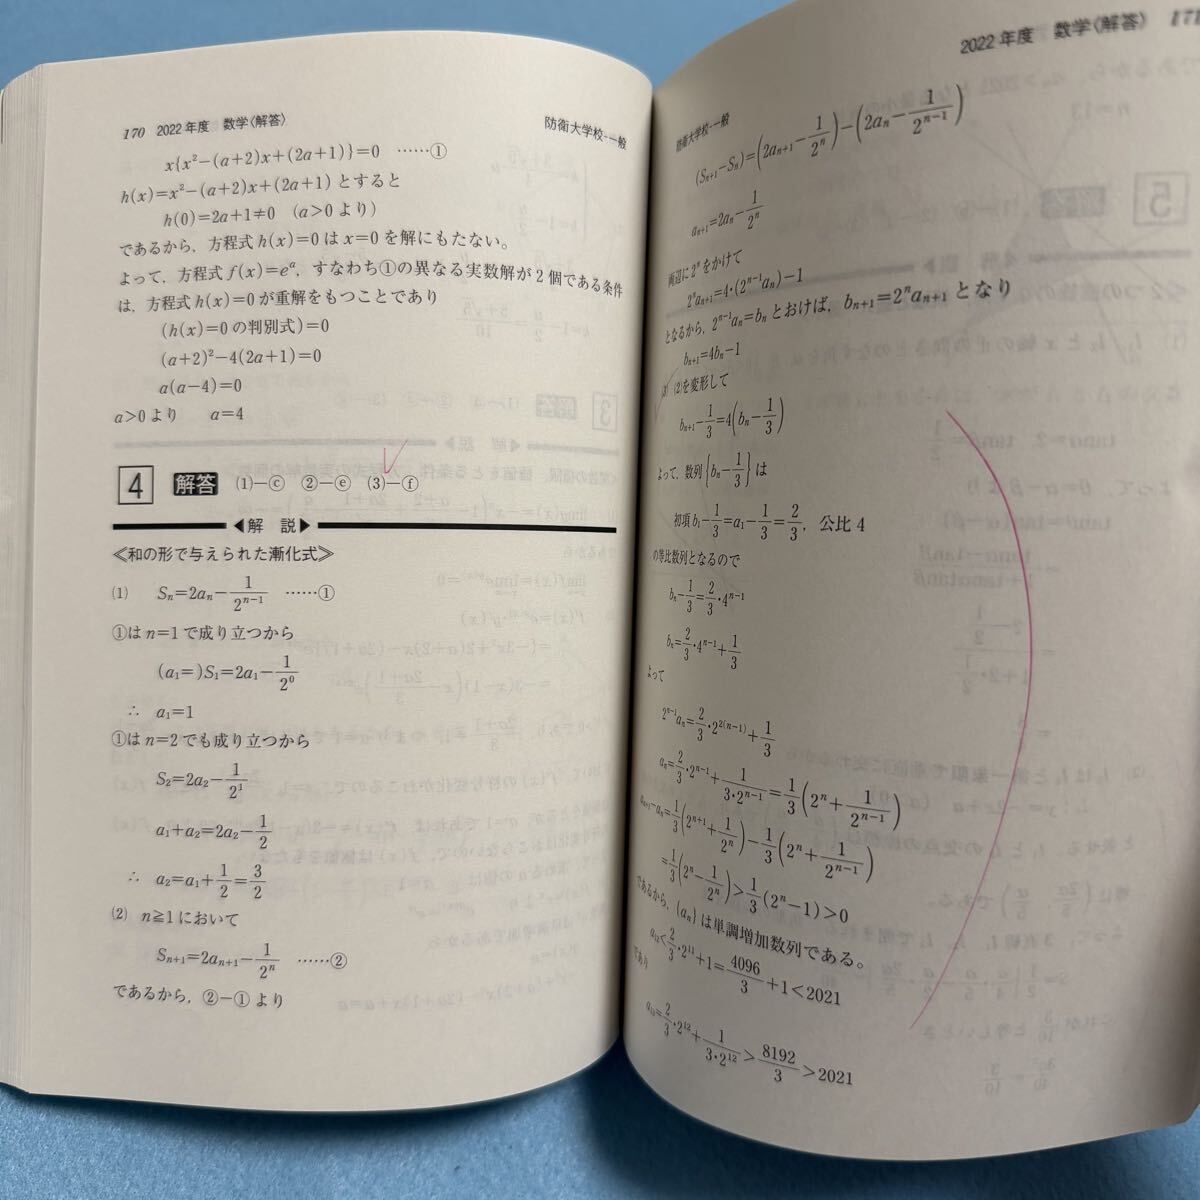 170 2022年度 数学〈解答〉 防衛大学校-一般
x{x²−(a+2)x+(2a+1)}=0 ……①
h(x)=x²−(a+2)x+(2a+1) とすると
h(0)=2a+1≠0 (a>0 より)
であるから，方程式 h(x)=0 は x=0 を解にもたない。
よって，方程式 f(x)=eᵃ，すなわち①の異なる実数解が2個である条件
は，方程式 h(x)=0 が重解をもつことであり
(h(x)=0 の判別式)=0
(a+2)²−4(2a+1)=0
a(a−4)=0
a>0 より a=4
4 解答 (1)−ⓒ (2)−ⓔ (3)−ⓕ
◀解 説▶
≪和の形で与えられた漸化式≫
(1) Sₙ=2aₙ−1/2ⁿ⁻¹ ……①
①は n=1 で成り立つから
(a₁=)S₁=2a₁−1/2⁰
∴ a₁=1
①は n=2 でも成り立つから
S₂=2a₂−1/2¹
a₁+a₂=2a₂−1/2
∴ a₂=a₁+1/2=3/2
(2) n≧1 において
Sₙ₊₁=2aₙ₊₁−1/2ⁿ ……②
であるから，②−①より
2022年度 数学〈解答〉 171
防衛大学校-一般
(Sₙ₊₁−Sₙ)=(2aₙ₊₁−1/2ⁿ)−(2aₙ−1/2ⁿ⁻¹)
aₙ₊₁=2aₙ−1/2ⁿ
両辺に 2ⁿ をかけて
2ⁿaₙ₊₁=4・(2ⁿ⁻¹aₙ)−1
となるから，2ⁿ⁻¹aₙ=bₙ とおけば，bₙ₊₁=2ⁿaₙ₊₁ となり
bₙ₊₁=4bₙ−1
(3) (2)を変形して
bₙ₊₁−1/3=4(bₙ−1/3)
よって，数列{bₙ−1/3}は
初項 b₁−1/3=a₁−1/3=2/3，公比 4
の等比数列となるので
bₙ−1/3=2/3・4ⁿ⁻¹
bₙ=2/3・4ⁿ⁻¹+1/3
よって
2ⁿ⁻¹aₙ=2/3・2²⁽ⁿ⁻¹⁾+1/3
aₙ=2/3・2ⁿ⁻¹+1/(3・2ⁿ⁻¹)=1/3(2ⁿ+1/2ⁿ⁻¹)
aₙ₊₁−aₙ=1/3(2ⁿ⁺¹+1/2ⁿ)−1/3(2ⁿ+1/2ⁿ⁻¹)
=1/3(2ⁿ−1/2ⁿ)>1/3(2ⁿ−1)>0
であるから，{aₙ}は単調増加数列である。
a₁₂<2/3・2¹¹+1=4096/3+1<2021
であり
a₁₃=2/3・2¹²+1/(3・2¹²)>8192/3>2021